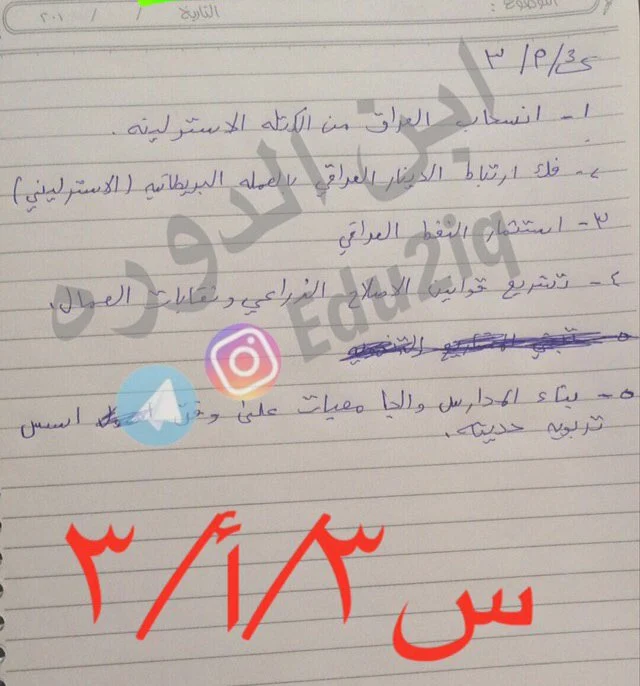 الموضوع :
التاريخ / / ٢٠١
س٣/ أ/ ٣
١- انسحاب العراق من الكتله الاسترلينه .
٢- فك ارتباط الدينار العراقي بالعمله البريطانيه (الاسترليني)
٣- استثمار النفط العراقي
٤- تشريع قوانين الاصلاح الزراعي و نقابات العمال .
٥- بناء المدارس والجامعيات على وفق اسس
تربويه حديثه .
ابن الدوره
Edu2iq
س ٣/أ/٣